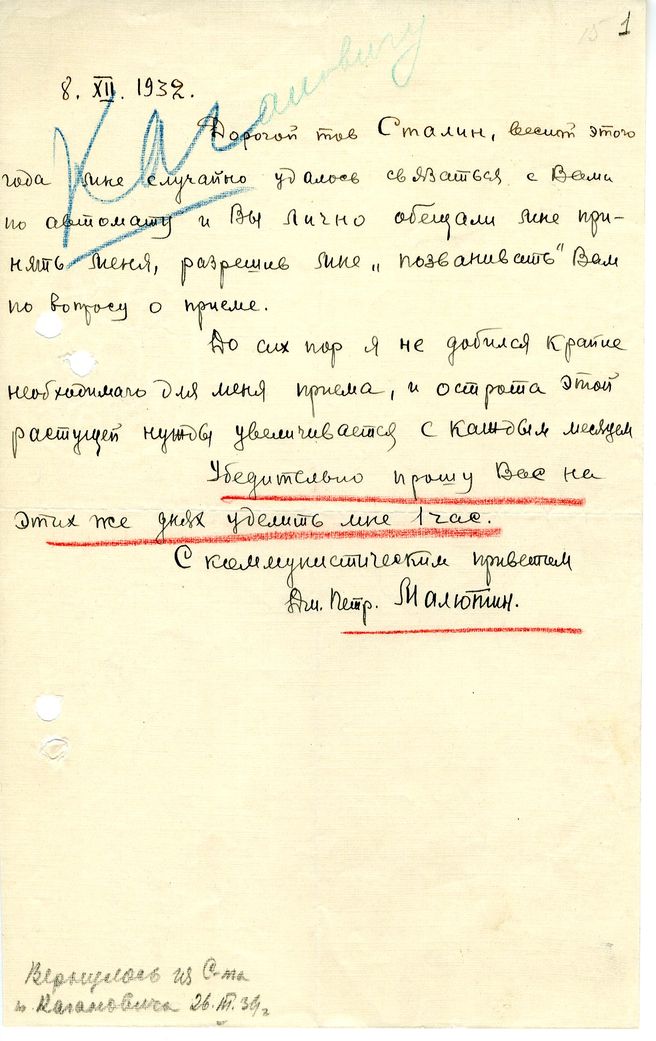 15 1
Кагановичу
8. XII. 1932.
Дорогой тов Сталин, весной этого
года мне случайно удалось связаться с Вами
по автомату и Вы лично обещали мне при-
нять меня, разрешив мне „позванивать" Вам
по вопросу о приеме.
До сих пор я не добился крайне
необходимаго для меня приема, и острота этой
растущей нужды увеличивается с каждым месяцем
Убедительно прошу Вас на
этих же днях уделить мне 1 час.
С коммунистическим приветом
Дм. Петр. Малютин.
Вернулось из С-та
т. Кагановича 26.III.34г